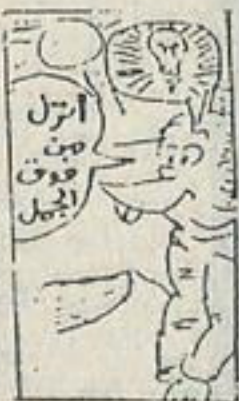 أنزل
من
فوق
الجمل